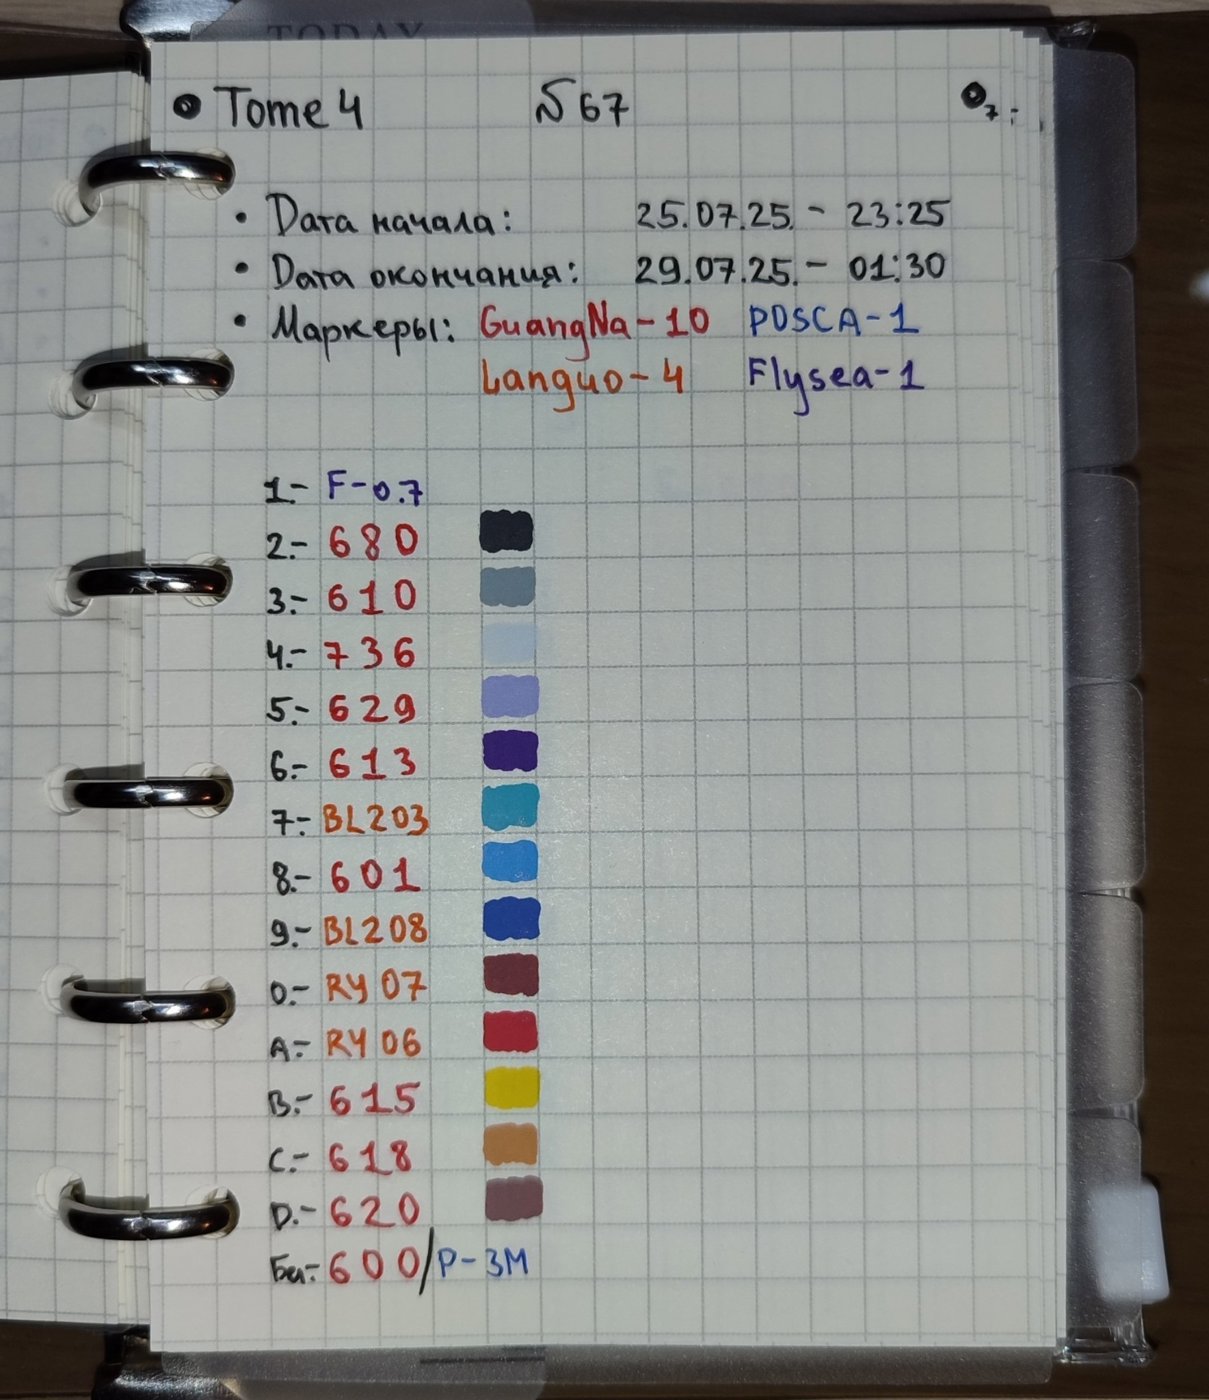 TODAY
Tome 4 №67
• Дата начала: 25.07.25. - 23:25
• Дата окончания: 29.07.25. - 01:30
• Маркеры: GuangNa-10 POSCA-1
Languo-4 Flysea-1
1.- F-0.7
2.- 680
3.- 610
4.- 736
5.- 629
6.- 613
7.- BL203
8.- 601
9.- BL208
0.- RY07
A.- RY06
B.- 615
C.- 618
D.- 620
Бл.- 600/P-3M